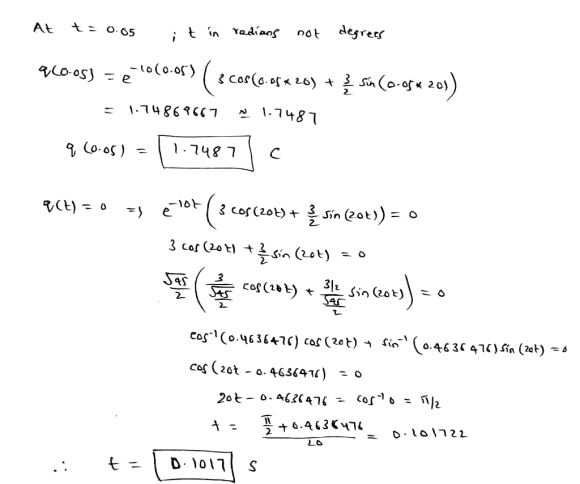 At t = 0.05 ; t in radians not degrees
q(0.05) = e^{-10(0.05)} (3 cos(0.05×20) + 3/2 sin(0.05×20))
= 1.74869667 ≈ 1.7487
q(0.05) = 1.7487 C
q(t) = 0 ⇒ e^{-10t} (3 cos(20t) + 3/2 sin(20t)) = 0
3 cos(20t) + 3/2 sin(20t) = 0
√45/2 (3/(√45/2) cos(20t) + (3/2)/(√45/2) sin(20t)) = 0
cos⁻¹(0.4636476) cos(20t) + sin⁻¹(0.4636476) sin(20t) = 0
cos(20t - 0.4636476) = 0
20t - 0.4636476 = cos⁻¹0 = π/2
t = (π/2 + 0.4636476)/20 = 0.101722
∴ t = 0.1017 s